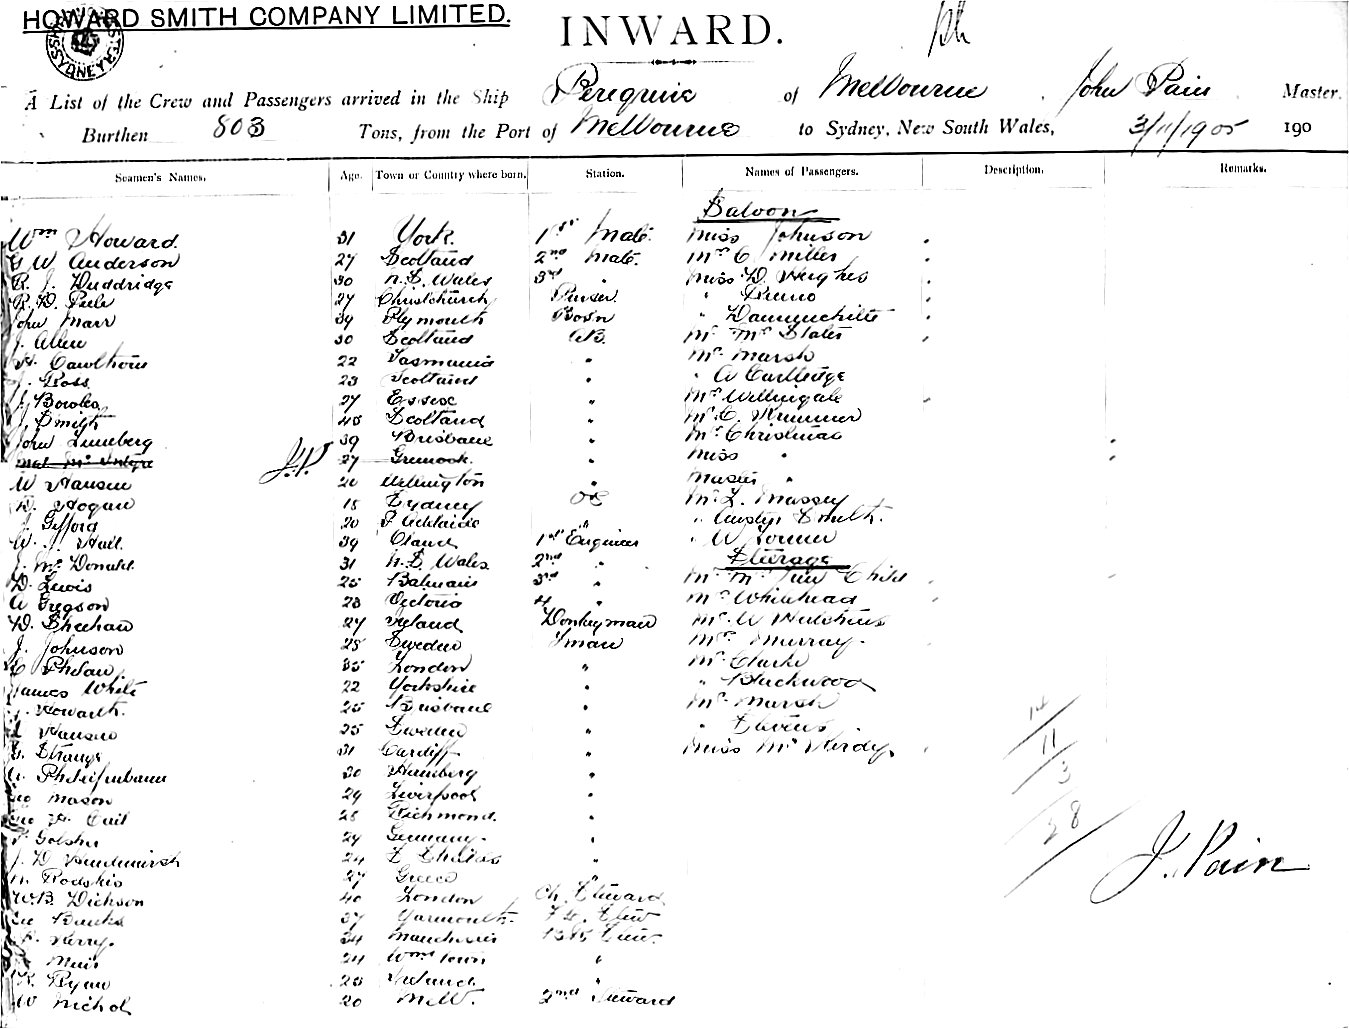 HOWARD SMITH COMPANY LIMITED.
INWARD.
A List of the Crew and Passengers arrived in the Ship Peregrine of Melbourne, John Pain Master.
Burthen 803 Tons, from the Port of Melbourne to Sydney, New South Wales, 3/11/1905 190
Seamen's Names. Age. Town or Country where born. Station. Names of Passengers. Description. Remarks.
Saloon
Wm Howard. 31 York. 1st Mate. Miss Johnson
G W Anderson 27 Scotland 2nd Mate. Mr C Miller
R. J. Duddridge 30 N. S. Wales 3rd " Miss D Hughes
R. D. Peele 27 Christchurch Purser. "
John Marr 39 Plymouth Bosn "
J. Allen 30 Scotland AB. Mr Mc Slater
H. Cawthorn 22 Tasmania " Mr Marsh
J. Ross 23 Scotland " " A Cartledge
J. Bowles 27 Essex " Mr Willingale
J. Smith 48 Scotland " Mr C.
John Luneberg 39 Brisbane " Mr Christmas
Mal McIntyre J.P. 27 Greenock. " Miss "
W Hansen 20 Wellington " Master "
D. Hogan 18 Sydney OS Mr L. Massey
J. Gifford 20 P Adelaide " " Austin Smith.
W. J. Hall 39 1st Engineer " W
Sterage
J. McDonald. 31 N. S. Wales 2nd " Child
D. Lewis 25 Balmain 3rd " Mr Whitehead
A Gregson 23 Victoria 4 " Mr W Hutchins
D. Sheehan 27 Ireland Donkeyman Mrs Murray.
J. Johnson 28 Sweden Fman Mr Clarke
C Phelan. 35 London " " Buckwood
James White 22 Yorkshire " Mr Marsh
J. Howarth. 25 Brisbane " " Stevens
Hansen 25 Sweden " Miss McKerdy
G. Strange 31 Cardiff "
30 Hamberg "
Geo Mason 29 Liverpool "
Geo H. Cail 28 Richmond. "
29 Germany. "
J. D 24 S Shields "
27 Greece
W.B. Dickson 40 London Ch. Steward
Geo Banks 37 Yarmouth.
Kerry. 34 Manchester
Muir 24 Wms Town "
Ryan 28 Ireland. "
W Nichol 20 Melb. 2nd Steward
14
11
3
28
J. Pain